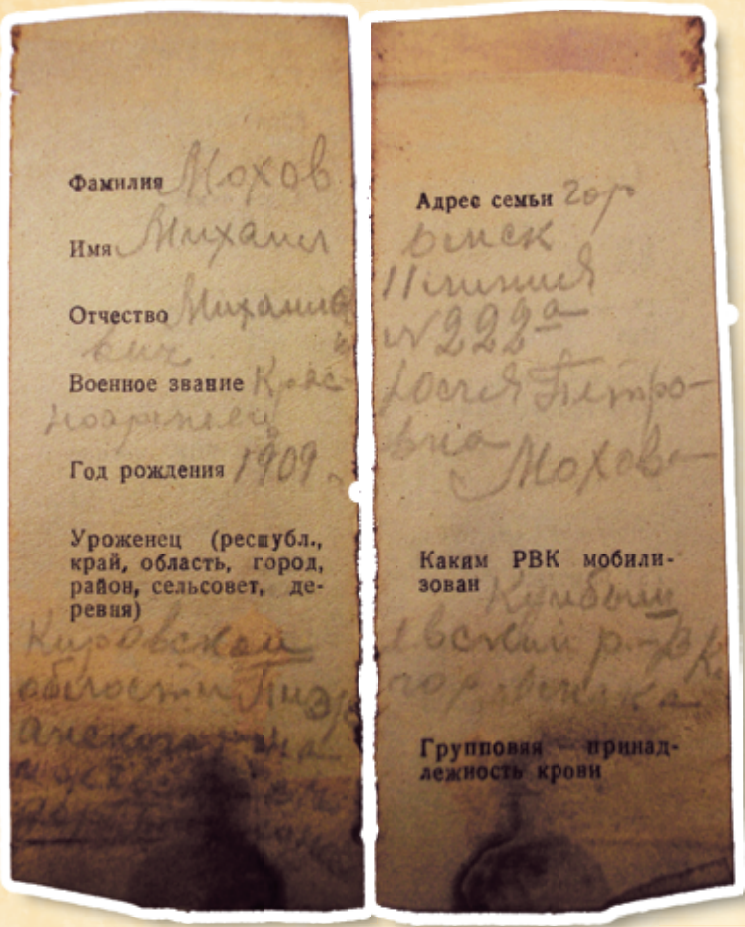 Фамилия Мохов
Имя Михаил
Отчество Михайло
вич
Военное звание Крас-
ноармеец
Год рождения 1909 г.
Уроженец (республ.,
край, область, город,
район, сельсовет, де-
ревня)
Кировской
области Пиж
анского р-на
Адрес семьи гор
Омск
11 линия
N 222а
Петро-
вна
Мохова
Каким РВК мобили-
зован Куйбыш
евский р-
гор Омска
Групповая принад-
лежность крови